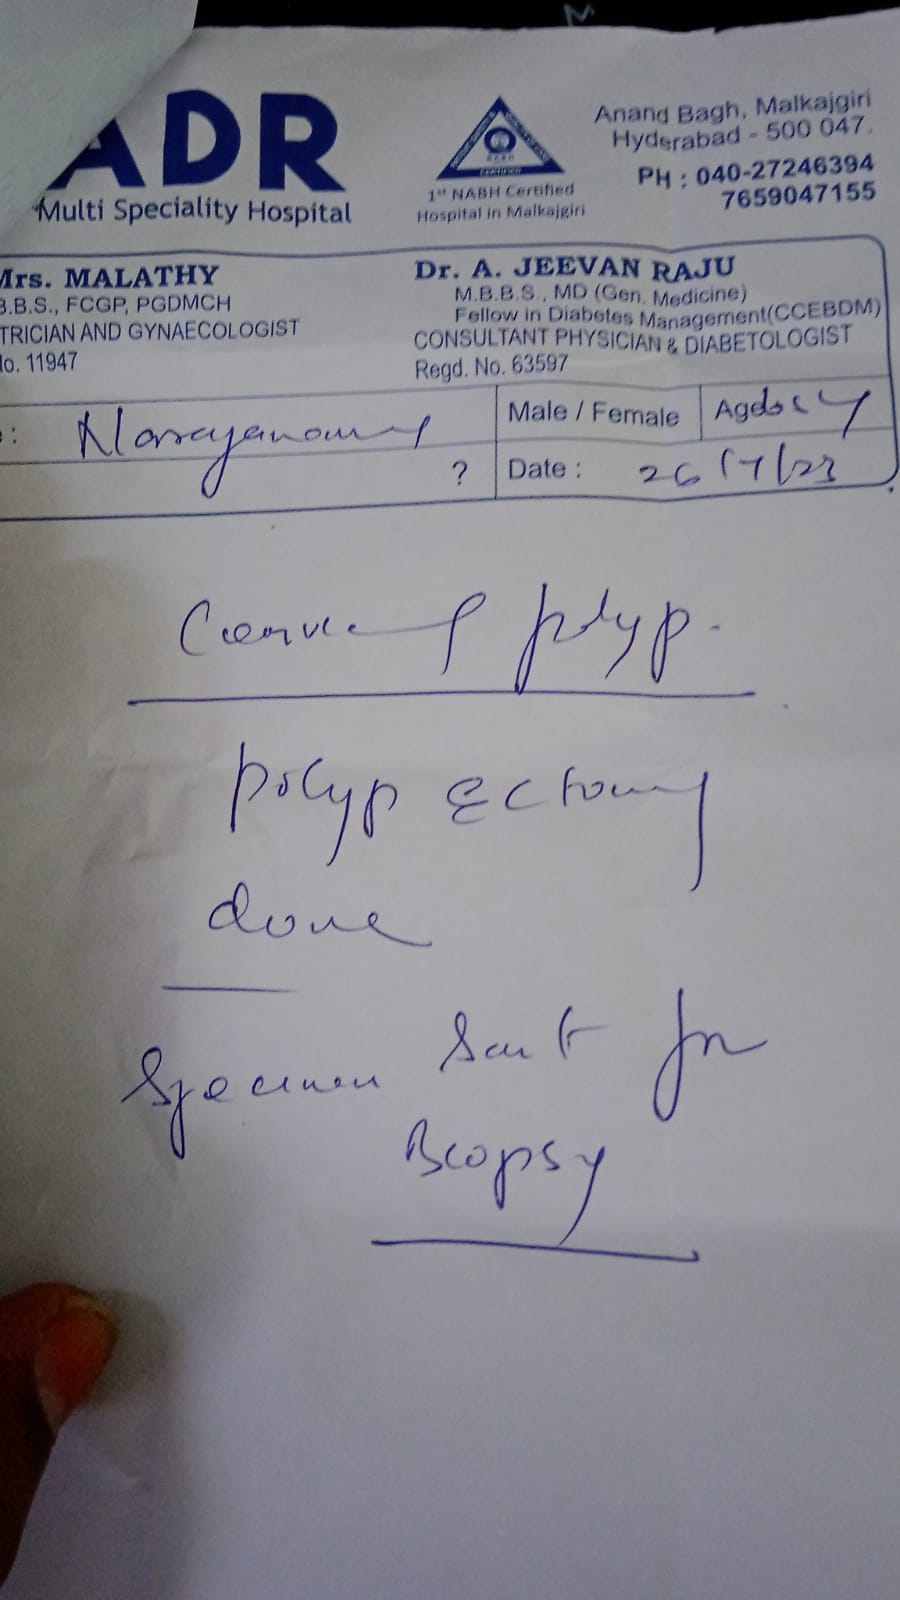 ADR
Multi Speciality Hospital
1st NABH Certified
Hospital in Malkajgiri
Anand Bagh, Malkajgiri
Hyderabad - 500 047.
PH : 040-27246394
7659047155
Mrs. MALATHY
B.B.S., FCGP, PGDMCH
TRICIAN AND GYNAECOLOGIST
No. 11947
Dr. A. JEEVAN RAJU
M.B.B.S., MD (Gen. Medicine)
Fellow in Diabetes Management(CCEBDM)
CONSULTANT PHYSICIAN & DIABETOLOGIST
Regd. No. 63597
: Male / Female Age
? Date : 26/7/23
polyp.
polypectomy
done
Specimen Sent for
Biopsy